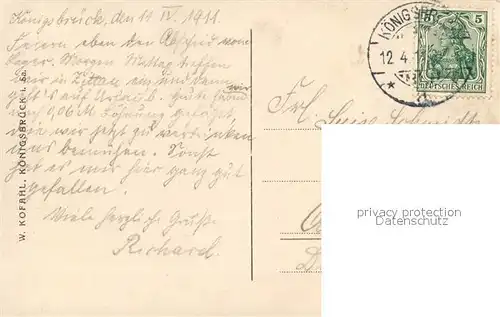 Königsbrück, den 11 IV. 1911.
Feiern eben den Abschied vom
Lager. Morgen Mittag treffen
wir in Zittau ein und dann
geht's auf Urlaub. Gute
0,06 M Löhnung gefaßt,
die wir jetzt zu vertrinken
uns bemühen. Sonst
hat es mir hier ganz gut
gefallen.
Viele herzliche Grüße
Richard.
W. KOFAHL, KÖNIGSBRÜCK I. SA.
KÖNIGSBR
12.4.
5
DEUTSCHES REICH
Frl.
privacy protection
Datenschutz